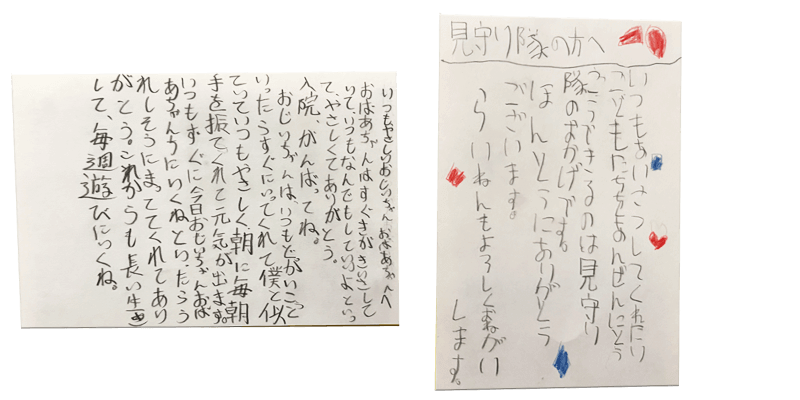 いつもやさしいおじいちゃんおばあちゃんへ
おばあちゃんはすぐきがきいてして
いて、いつもなんでもしていいよといっ
て、やさしくてありがとう。
入院、がんばってね。
おじいちゃんは、いつもどがいこっと
いったらすぐにいってくれて僕と似
ていていつもやさしく朝に毎朝
手を振ってくれて元気が出ます。
いつもすぐに今日おじいちゃんおば
あちゃんちにいくねといったらう
れしそうにまっててくれてあり
がとう。これからも長い生き
して、毎週遊びにいくね。
見守り隊の方へ
いつもあいさつしてくれたり
こどもたちをあんぜんにとう
こうできるのは見守り
隊のおかげです。
ほんとうにありがとう
ございます。
らいねんもよろしくおねがい
します。